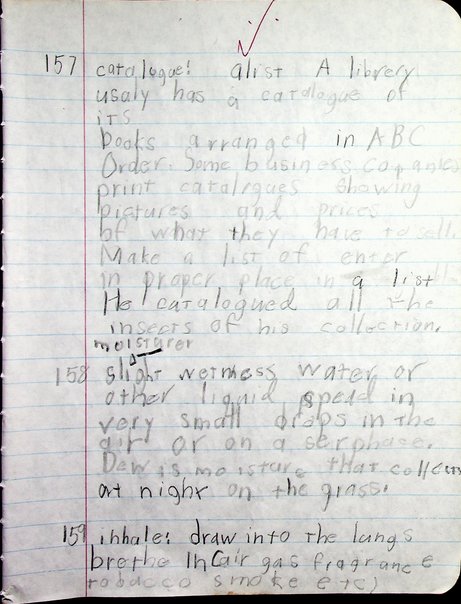 157 catalogue: alist A librery
usaly has a catalogue of
its
books arranged in ABC
Order. Some business companies
print catalogues showing
pictures and prices
of what they have to sell.
Make a list of enter
in proper place in a list
He catalogued all the
insects of his collection.
moisturer
158 slight wetness water or
other liquid spead in
very small drops in the
air or on a serphace.
Dew is moisture that collects
at night on the grass.
159 inhale: draw into the lungs
brethe In (air gas fragrance
tobacco smoke etc)